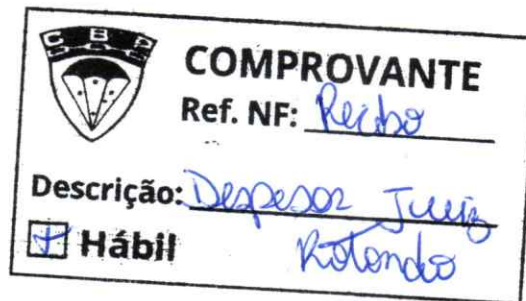 CBP
COMPROVANTE
Ref. NF: Recibo
Descrição: Despesas Juiz
Rotondo
Hábil